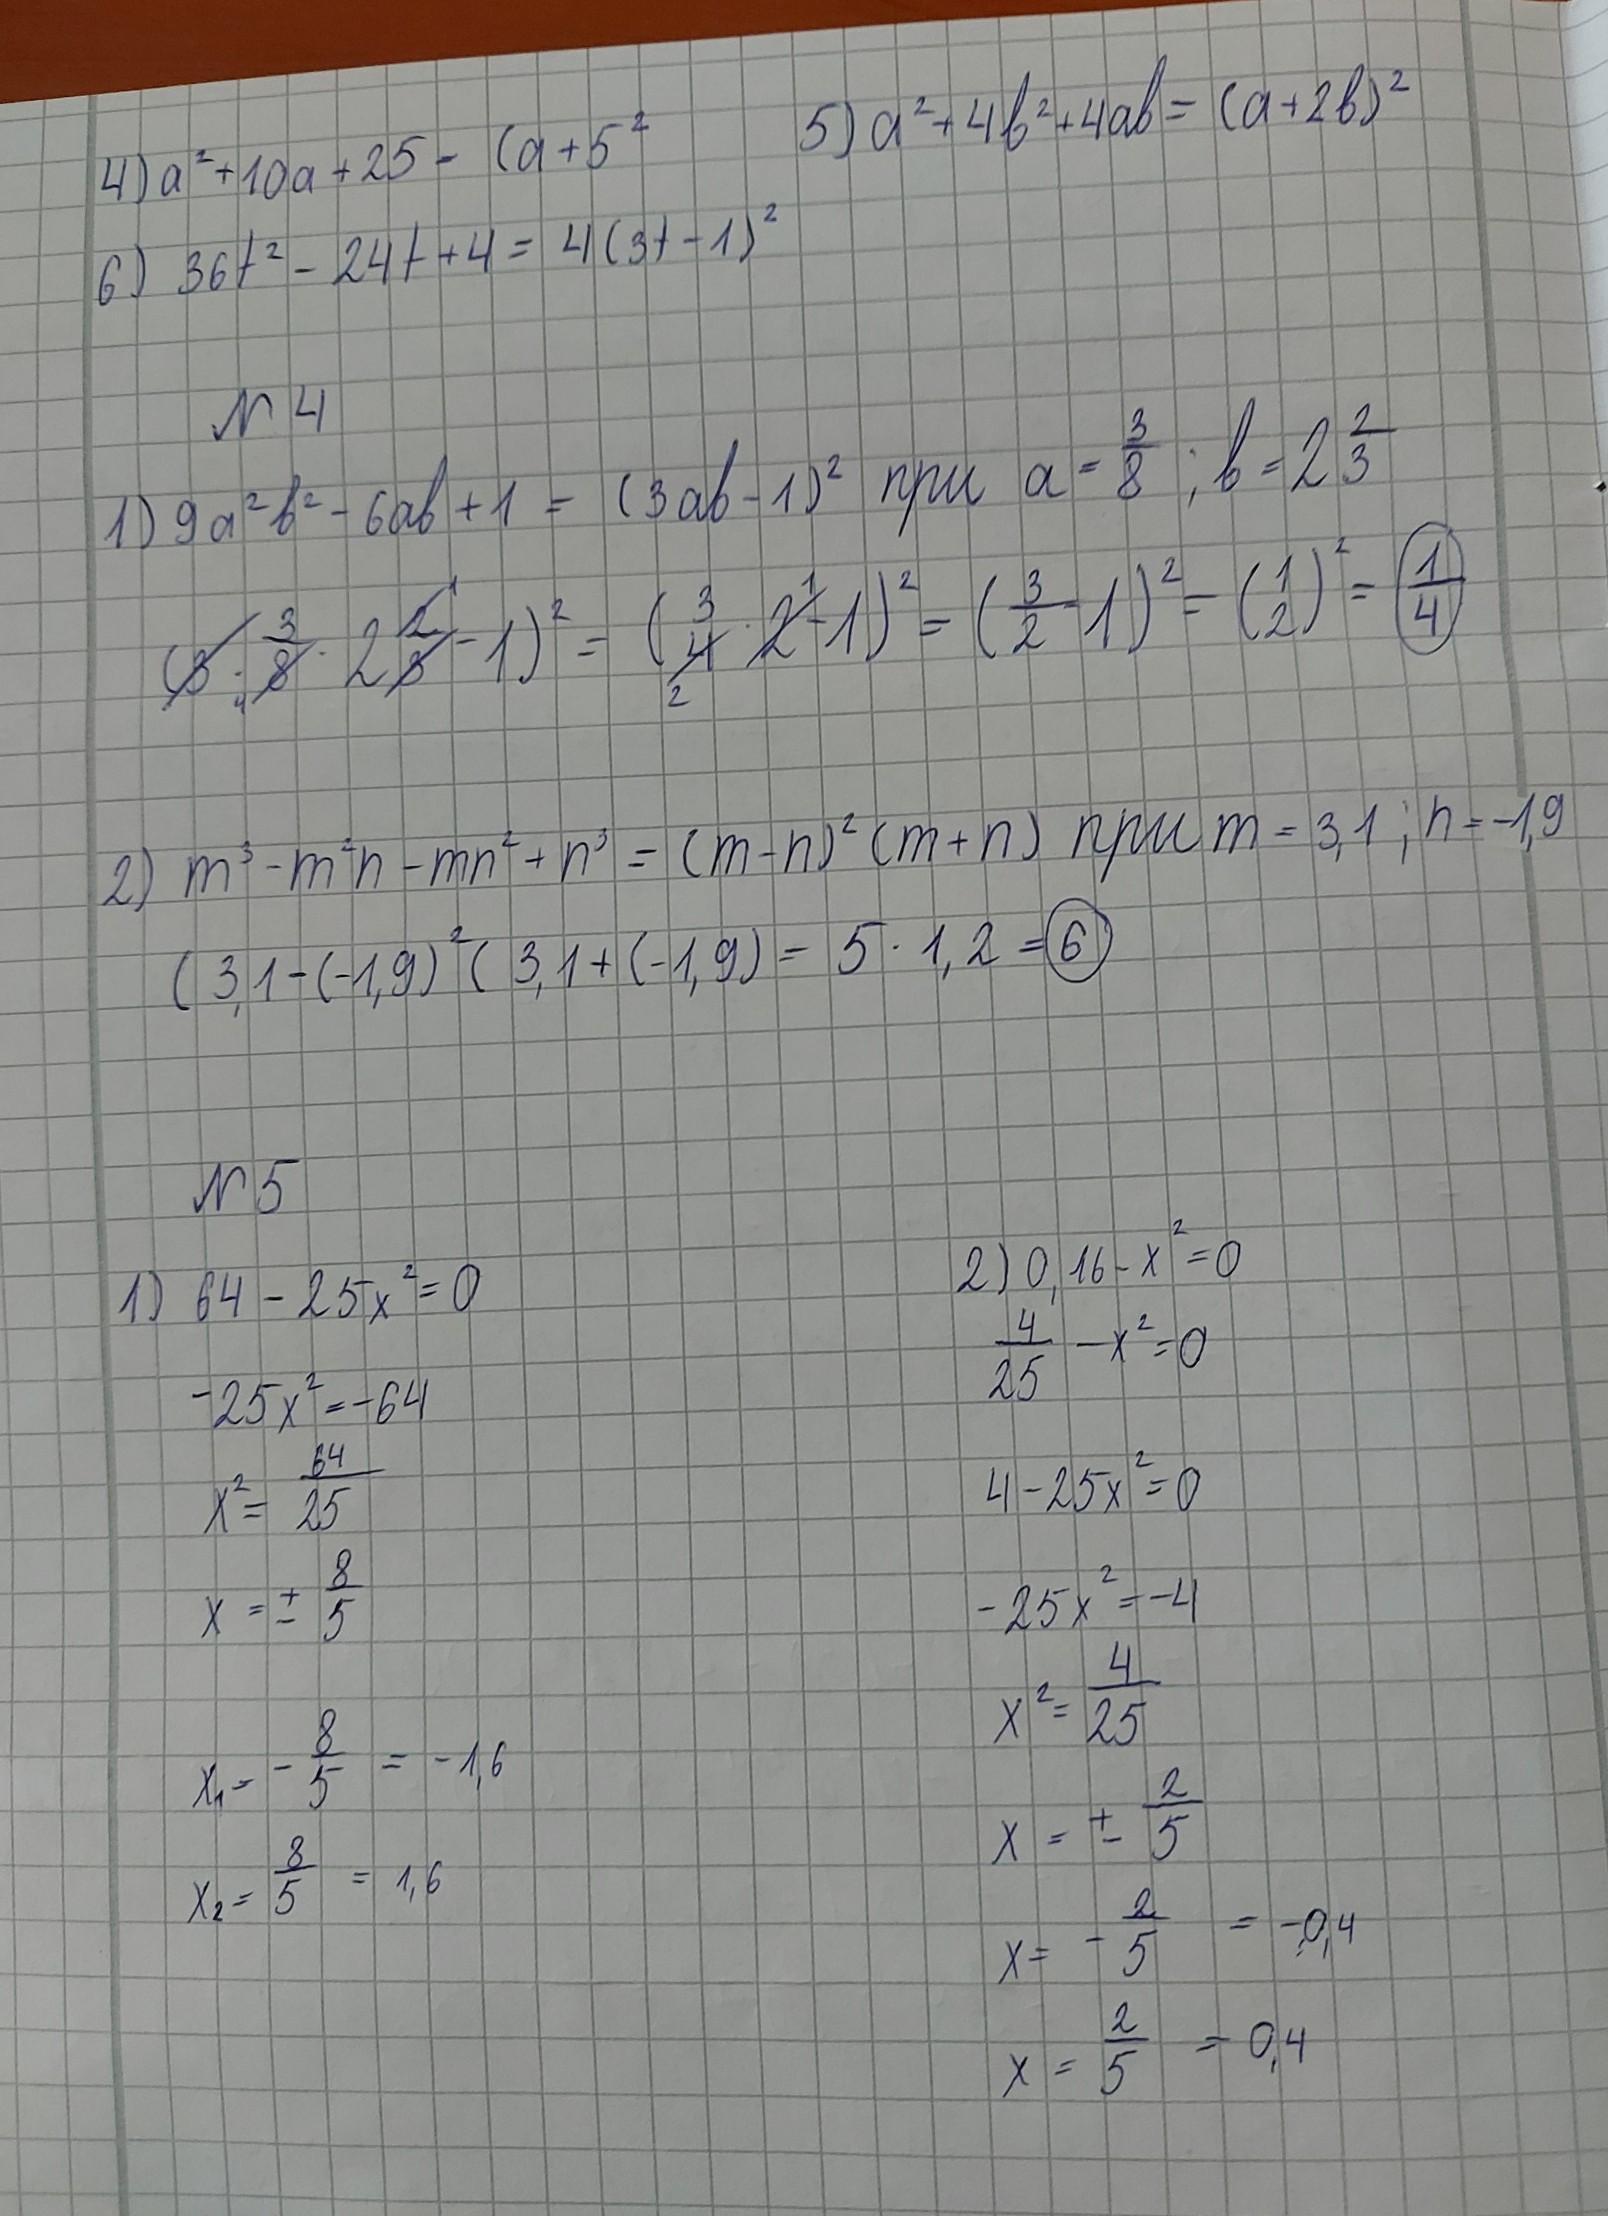 4) a² + 10a + 25 - (a + 5²
5) a² + 4b² + 4ab = (a + 2b)²
6) 36t² - 24t + 4 = 4(3t - 1)²
№4
1) 9a²b² - 6ab + 1 = (3ab - 1)² при a = 3/8 ; b = 2 2/3
(3 · 3/8 · 2 2/3 - 1)² = (3/4 · 2 - 1)² = (3/2 - 1)² = (1/2)² = 1/4
2) m³ - m²n - mn² + n³ = (m - n)² (m + n) при m = 3,1 ; n = -1,9
(3,1 - (-1,9)² (3,1 + (-1,9) = 5 · 1,2 = 6
№5
1) 64 - 25x² = 0
-25x² = -64
x² = 64/25
x = ± 8/5
x₁ = - 8/5 = -1,6
x₂ = 8/5 = 1,6
2) 0,16 - x² = 0
4/25 - x² = 0
4 - 25x² = 0
-25x² = -4
x² = 4/25
x = ± 2/5
x = - 2/5 = -0,4
x = 2/5 = 0,4